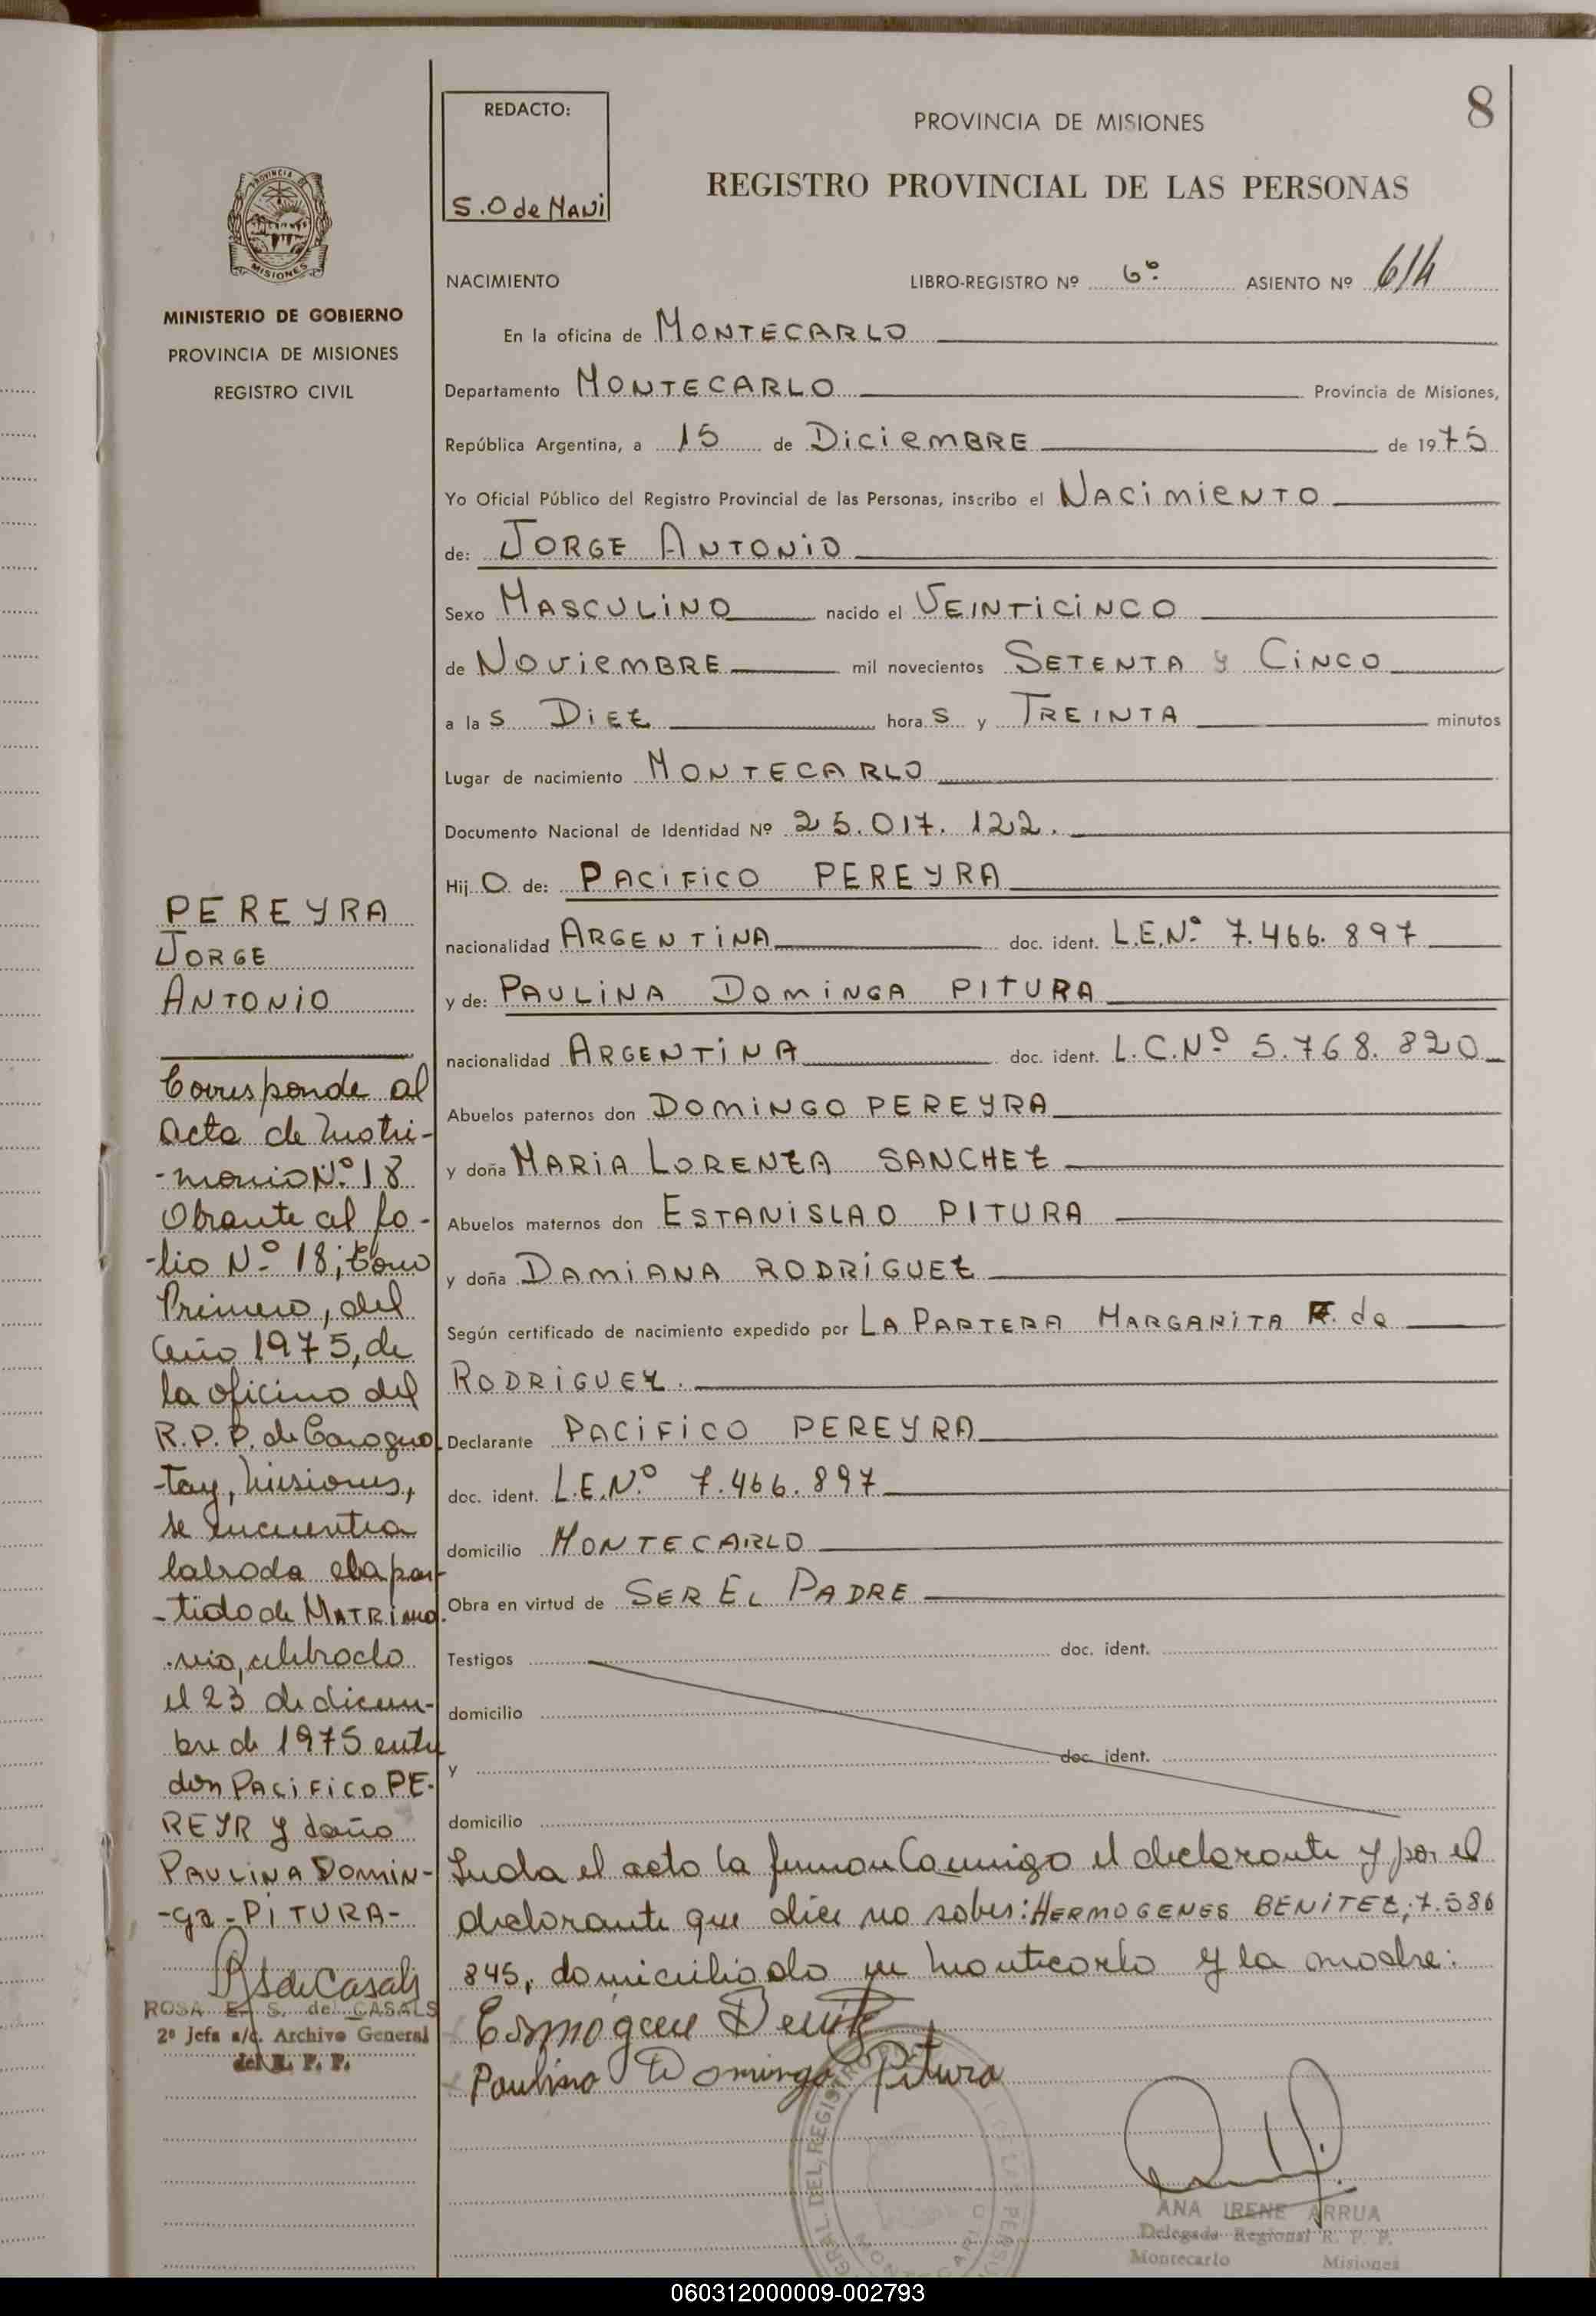 8
REDACTO:
S.O de NAVI
PROVINCIA DE MISIONES
REGISTRO PROVINCIAL DE LAS PERSONAS
PROVINCIA DE
MISIONES
MINISTERIO DE GOBIERNO
PROVINCIA DE MISIONES
REGISTRO CIVIL
NACIMIENTO LIBRO-REGISTRO Nº 6º ASIENTO Nº 614
En la oficina de MONTECARLO
Departamento MONTECARLO Provincia de Misiones,
República Argentina, a 15 de DICIEMBRE de 1975
Yo Oficial Público del Registro Provincial de las Personas, inscribo el NACIMIENTO
de: JORGE ANTONIO
Sexo MASCULINO nacido el VEINTICINCO
de NOVIEMBRE mil novecientos SETENTA y CINCO
a las DIEZ horas y TREINTA minutos
Lugar de nacimiento MONTECARLO
Documento Nacional de Identidad Nº 25.017.122.
Hijo de: PACIFICO PEREYRA
nacionalidad ARGENTINA doc. ident. L.E.Nº 7.466.897
y de: PAULINA DOMINGA PITURA
nacionalidad ARGENTINA doc. ident. L.C.Nº 5.768.820
Abuelos paternos don DOMINGO PEREYRA
y doña MARIA LORENZA SANCHEZ
Abuelos maternos don ESTANISLAO PITURA
y doña DAMIANA RODRIGUEZ
Según certificado de nacimiento expedido por LA PARTERA MARGARITA F. de
RODRIGUEZ.
Declarante PACIFICO PEREYRA
doc. ident. L.E.Nº 7.466.897
domicilio MONTECARLO
Obra en virtud de SER EL PADRE
Testigos doc. ident.
domicilio
y doc. ident.
domicilio
Leida el acta la firman Conmigo el declarante y por el
declarante que dice no saber: HERMOGENES BENITEZ; 7.586
845, domiciliado en Montecarlo y la madre:
Ermogene Benite
Paulina Dominga Pitura
ANA IRENE ARRUA
Delegada Regional R. P. P.
Montecarlo Misiones
PEREYRA
JORGE
ANTONIO
Corresponde al
acta de Matri-
-monio Nº 18
Obrante al fo-
-lio Nº 18; tomo
Primero, del
año 1975, de
la oficina del
R.P.P. de Caragua
-tay, Misiones,
se encuentra
labrada el a par-
-tida de MATRIMO.
-nio, celebrado
el 23 de diciem-
bre de 1975 entre
don PACIFICO PE-
REYR y doña
PAULINA DOMIN-
-ga-PITURA-
RSdeCasals
ROSA E. S. de CASALS
2º Jefa a/c. Archivo General
del R. P. P.
060312000009-002793